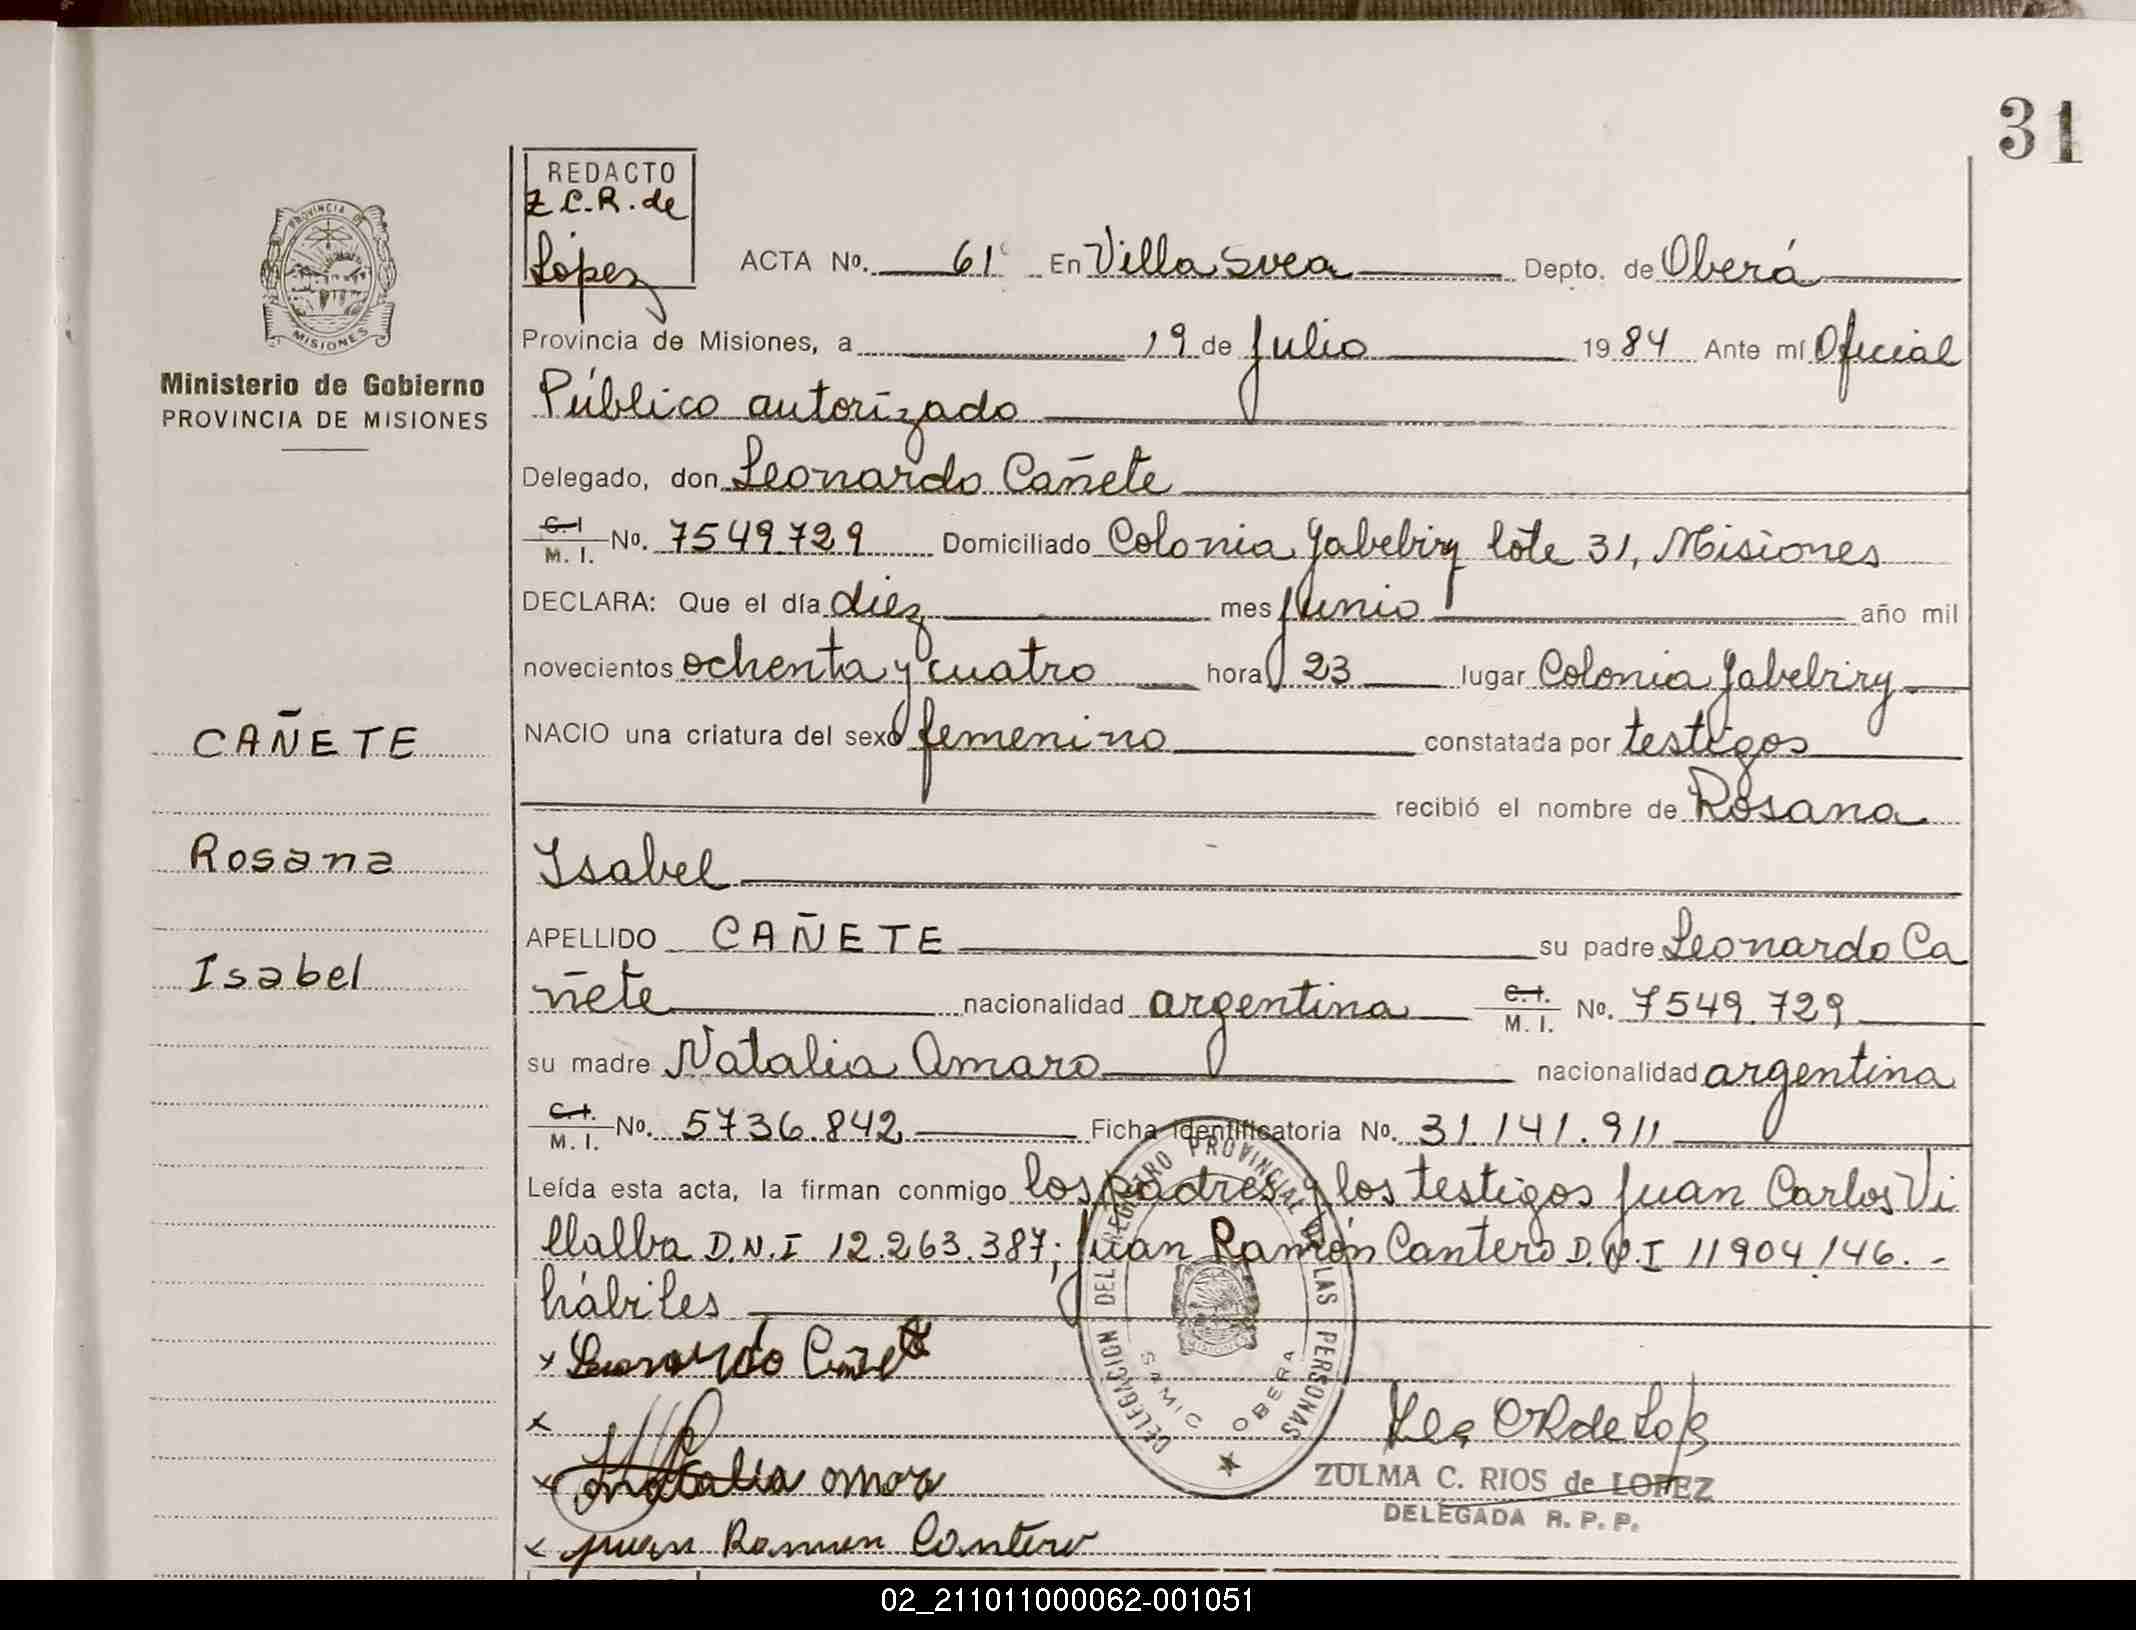 31
REDACTO
Z.C.R. de
López
PROVINCIA DE
MISIONES
Ministerio de Gobierno
PROVINCIA DE MISIONES
ACTA No. 61 En Villa Svea Depto. de Oberá
Provincia de Misiones, a 19 de Julio 1984 Ante mí Oficial
Público autorizado
Delegado, don Leonardo Cañete
C.I. M.I. No. 7549729 Domiciliado Colonia Yabebiry lote 31, Misiones
DECLARA: Que el día diez mes Junio año mil
novecientos ochenta y cuatro hora 23 lugar Colonia Yabebiry
CAÑETE
NACIO una criatura del sexo femenino constatada por testigos
recibió el nombre de Rosana
Rosana
Isabel
APELLIDO CAÑETE su padre Leonardo Ca
Isabel
ñete nacionalidad argentina C.I. M.I. No. 7549.729
su madre Natalia Amaro nacionalidad argentina
C.I. M.I. No. 5736.842 Ficha Identificatoria No. 31.141.911
Leída esta acta, la firman conmigo los padres y los testigos Juan Carlos Vi
llalba D.N.I 12.263.387; Juan Ramón Cantero D.N.I 11904146.-
hábiles
x Leonardo Cañete
DELEGACION DEL REGISTRO PROVINCIAL DE LAS PERSONAS
SAMIC OBERA
MISIONES
x
x Natalia omar
ZULMA C. RIOS de LOPEZ
DELEGADA R.P.P.
x Juan Ramon Cantero
02_211011000062-001051